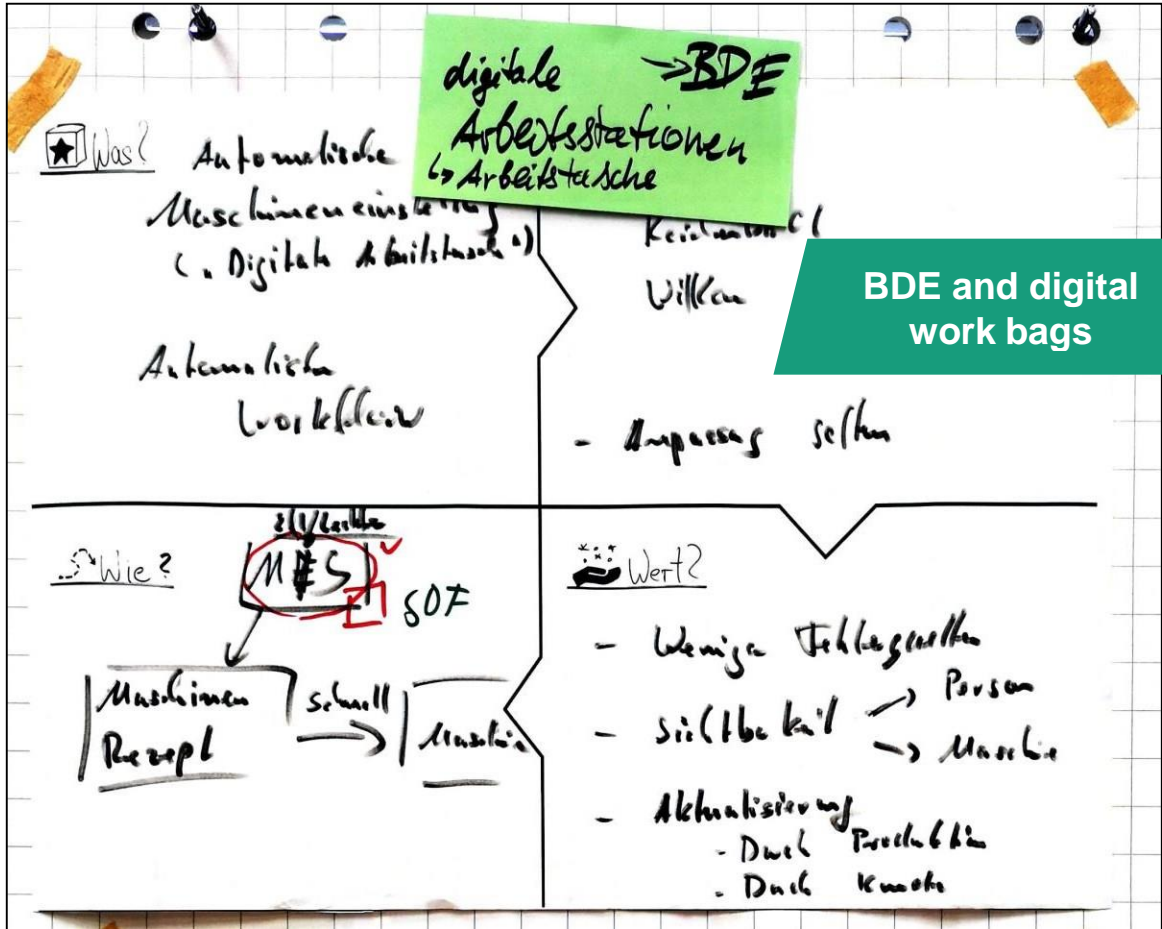 digitale → BDE
Arbeitsstationen
↳ Arbeitstasche
BDE and digital
work bags
Was?
Automatische
Maschineneinstellung
("Digitale Arbeitstasche")
Automatischer
Workflow
Willen
- Anpassung selten
Wie?
MES
SOF
Maschinen
Rezept
schnell
Maschine
Wert?
- Weniger Fehlerquellen
- Sichtbarkeit → Person
→ Maschine
- Aktualisierung
- Durch Produktion
- Durch